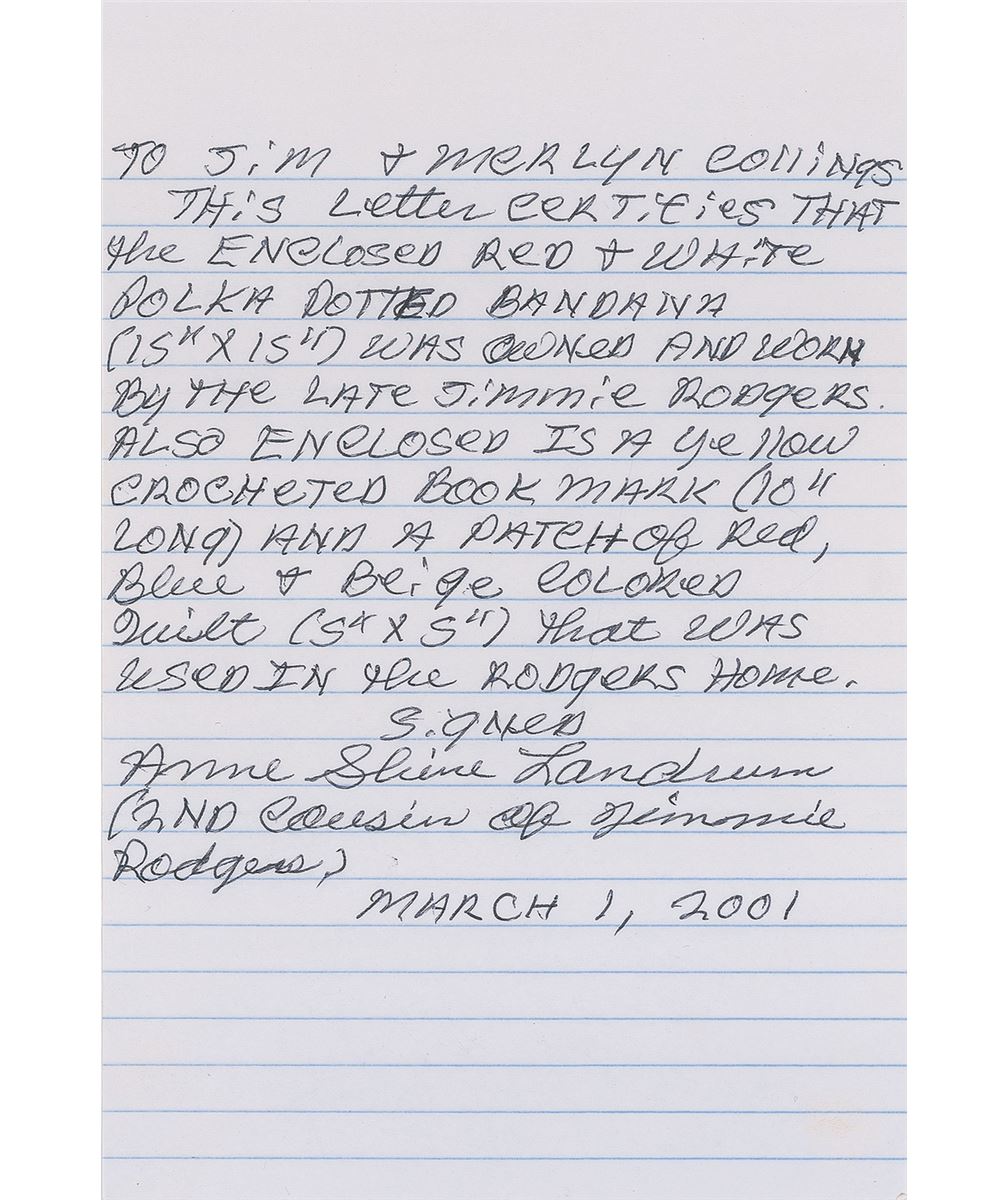 TO JiM & MERLYN COllINgS
THiS Letter CERTiFieS THAT
the ENClOSED RED & WHiTe
POLKA DOTTED BANDANA
(15" X 15") WAS OWNED AND WORN
By THe LATe Jimmie RODgeRS.
ALSO ENCLOSED IS A yellow
CROCHETED BOOK MARK (10"
LONg) AND A PATCH Of Red,
Blue & Beige COLORED
Quilt (5" X 5") that WAS
USED IN the RODgeRS Home.
SigNeD
Anne Shine Landrum
(2ND Cousin of Jimmie
Rodgers)
MARCH 1, 2001